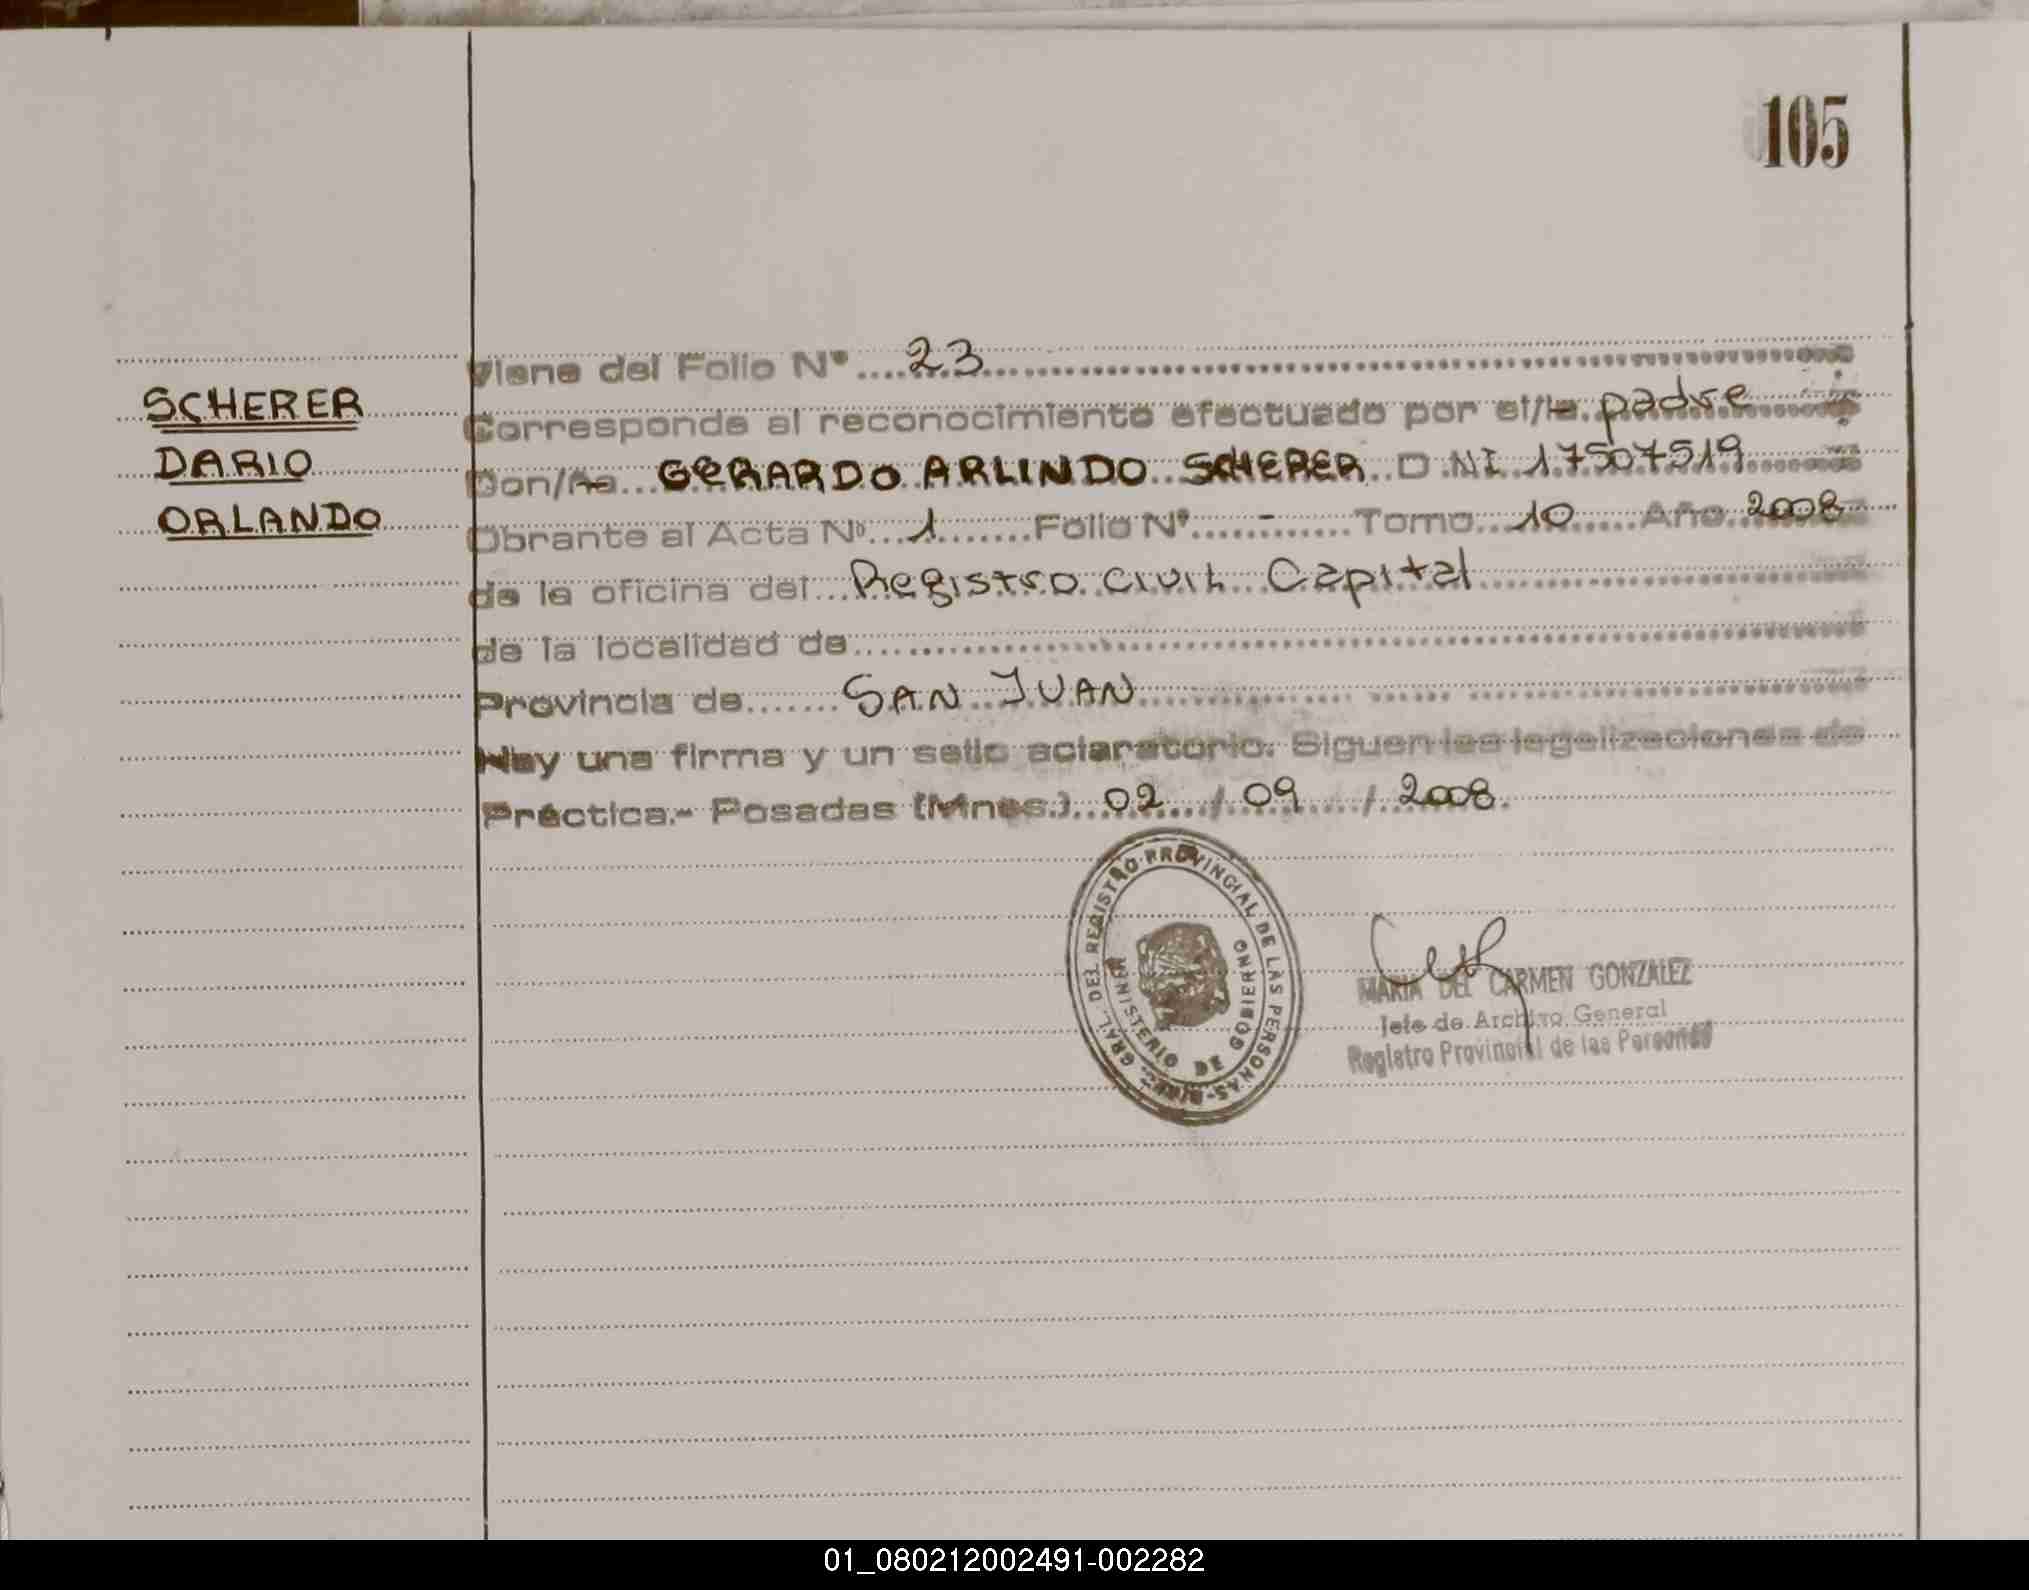 105
SCHERER
DARIO
ORLANDO
Viene del Folio Nº 23
Corresponde al reconocimiento efectuado por el/la padre
Don/ña GERARDO ARLINDO SCHERER D NI 17507519
Obrante al Acta Nº 1 Folio Nº - Tomo 10 Año 2008
de la oficina del Registro Civil Capital
de la localidad de
Provincia de SAN JUAN
Hay una firma y un sello aclaratorio. Siguen las legalizaciones de
Práctica.- Posadas (Mnes.) 02 / 09 / 2008.
GRAL. DEL REGISTRO PROVINCIAL DE LAS PERSONAS
MINISTERIO DE GOBIERNO
MARIA DEL CARMEN GONZALEZ
Jefe de Archivo General
Registro Provincial de las Personas
01_080212002491-002282